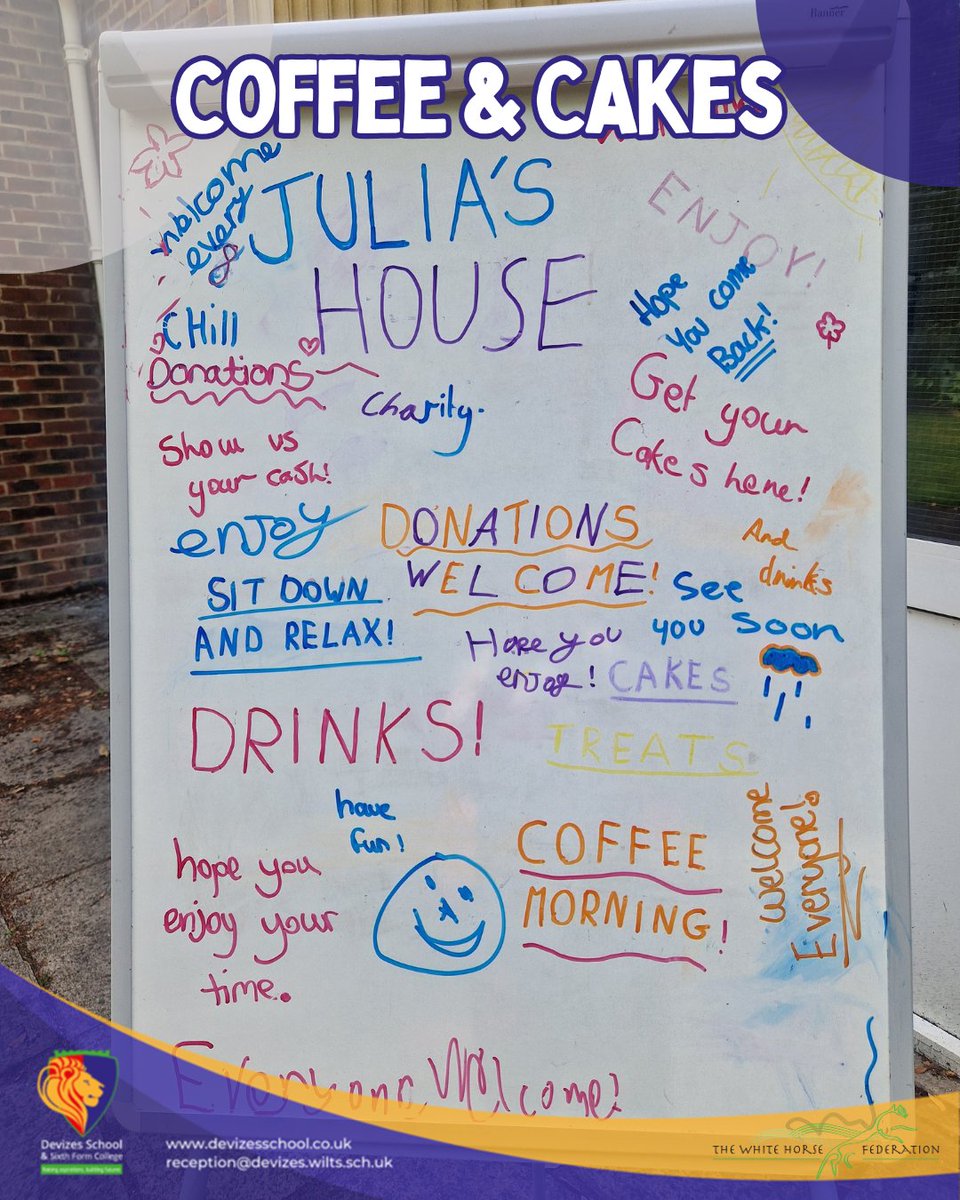 Banner
COFFEE & CAKES
welcome
every
JULIA'S
HOUSE
ENJOY!
Hope
you come
Back!
CHill
Donations
Charity.
Get your
Cakes here!
Show us
your cash!
enjoy
DONATIONS
WELCOME!
And
drinks
SIT DOWN
AND RELAX!
See
you soon
Hope you
enjoy!
CAKES
DRINKS!
TREATS
have
fun!
COFFEE
MORNING!
welcome
Everyone!
hope you
enjoy your
time.
Everyone Welcome!
Devizes School
& Sixth Form College
Raising aspirations, building futures
www.devizesschool.co.uk
reception@devizes.wilts.sch.uk
THE WHITE HORSE FEDERATION